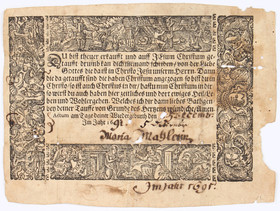 DU bist thewr erkaufft und auff JEsum Christum ge-
taufft drumb kan dich niemand scheiden / von der Liebe
Gottes die da ist in Christo Jesu unserm Herrn. Dann
die da getaufft sind die haben Christum angezogen so bist du
Christi / so ist auch Christus in dir / hastu nun Christum in dir
so wirst du auch haben hier zeitliches und dort ewiges Heil / Le-
ben und Wohlergehen. Welches ich dir dann liebes
von deiner Tauffe von Grunde des Herzens wündsche / Amen.
Actum am Tage deiner Wiedergebuhrt den
Im Jahr
Maria
Im Jahr 1691.